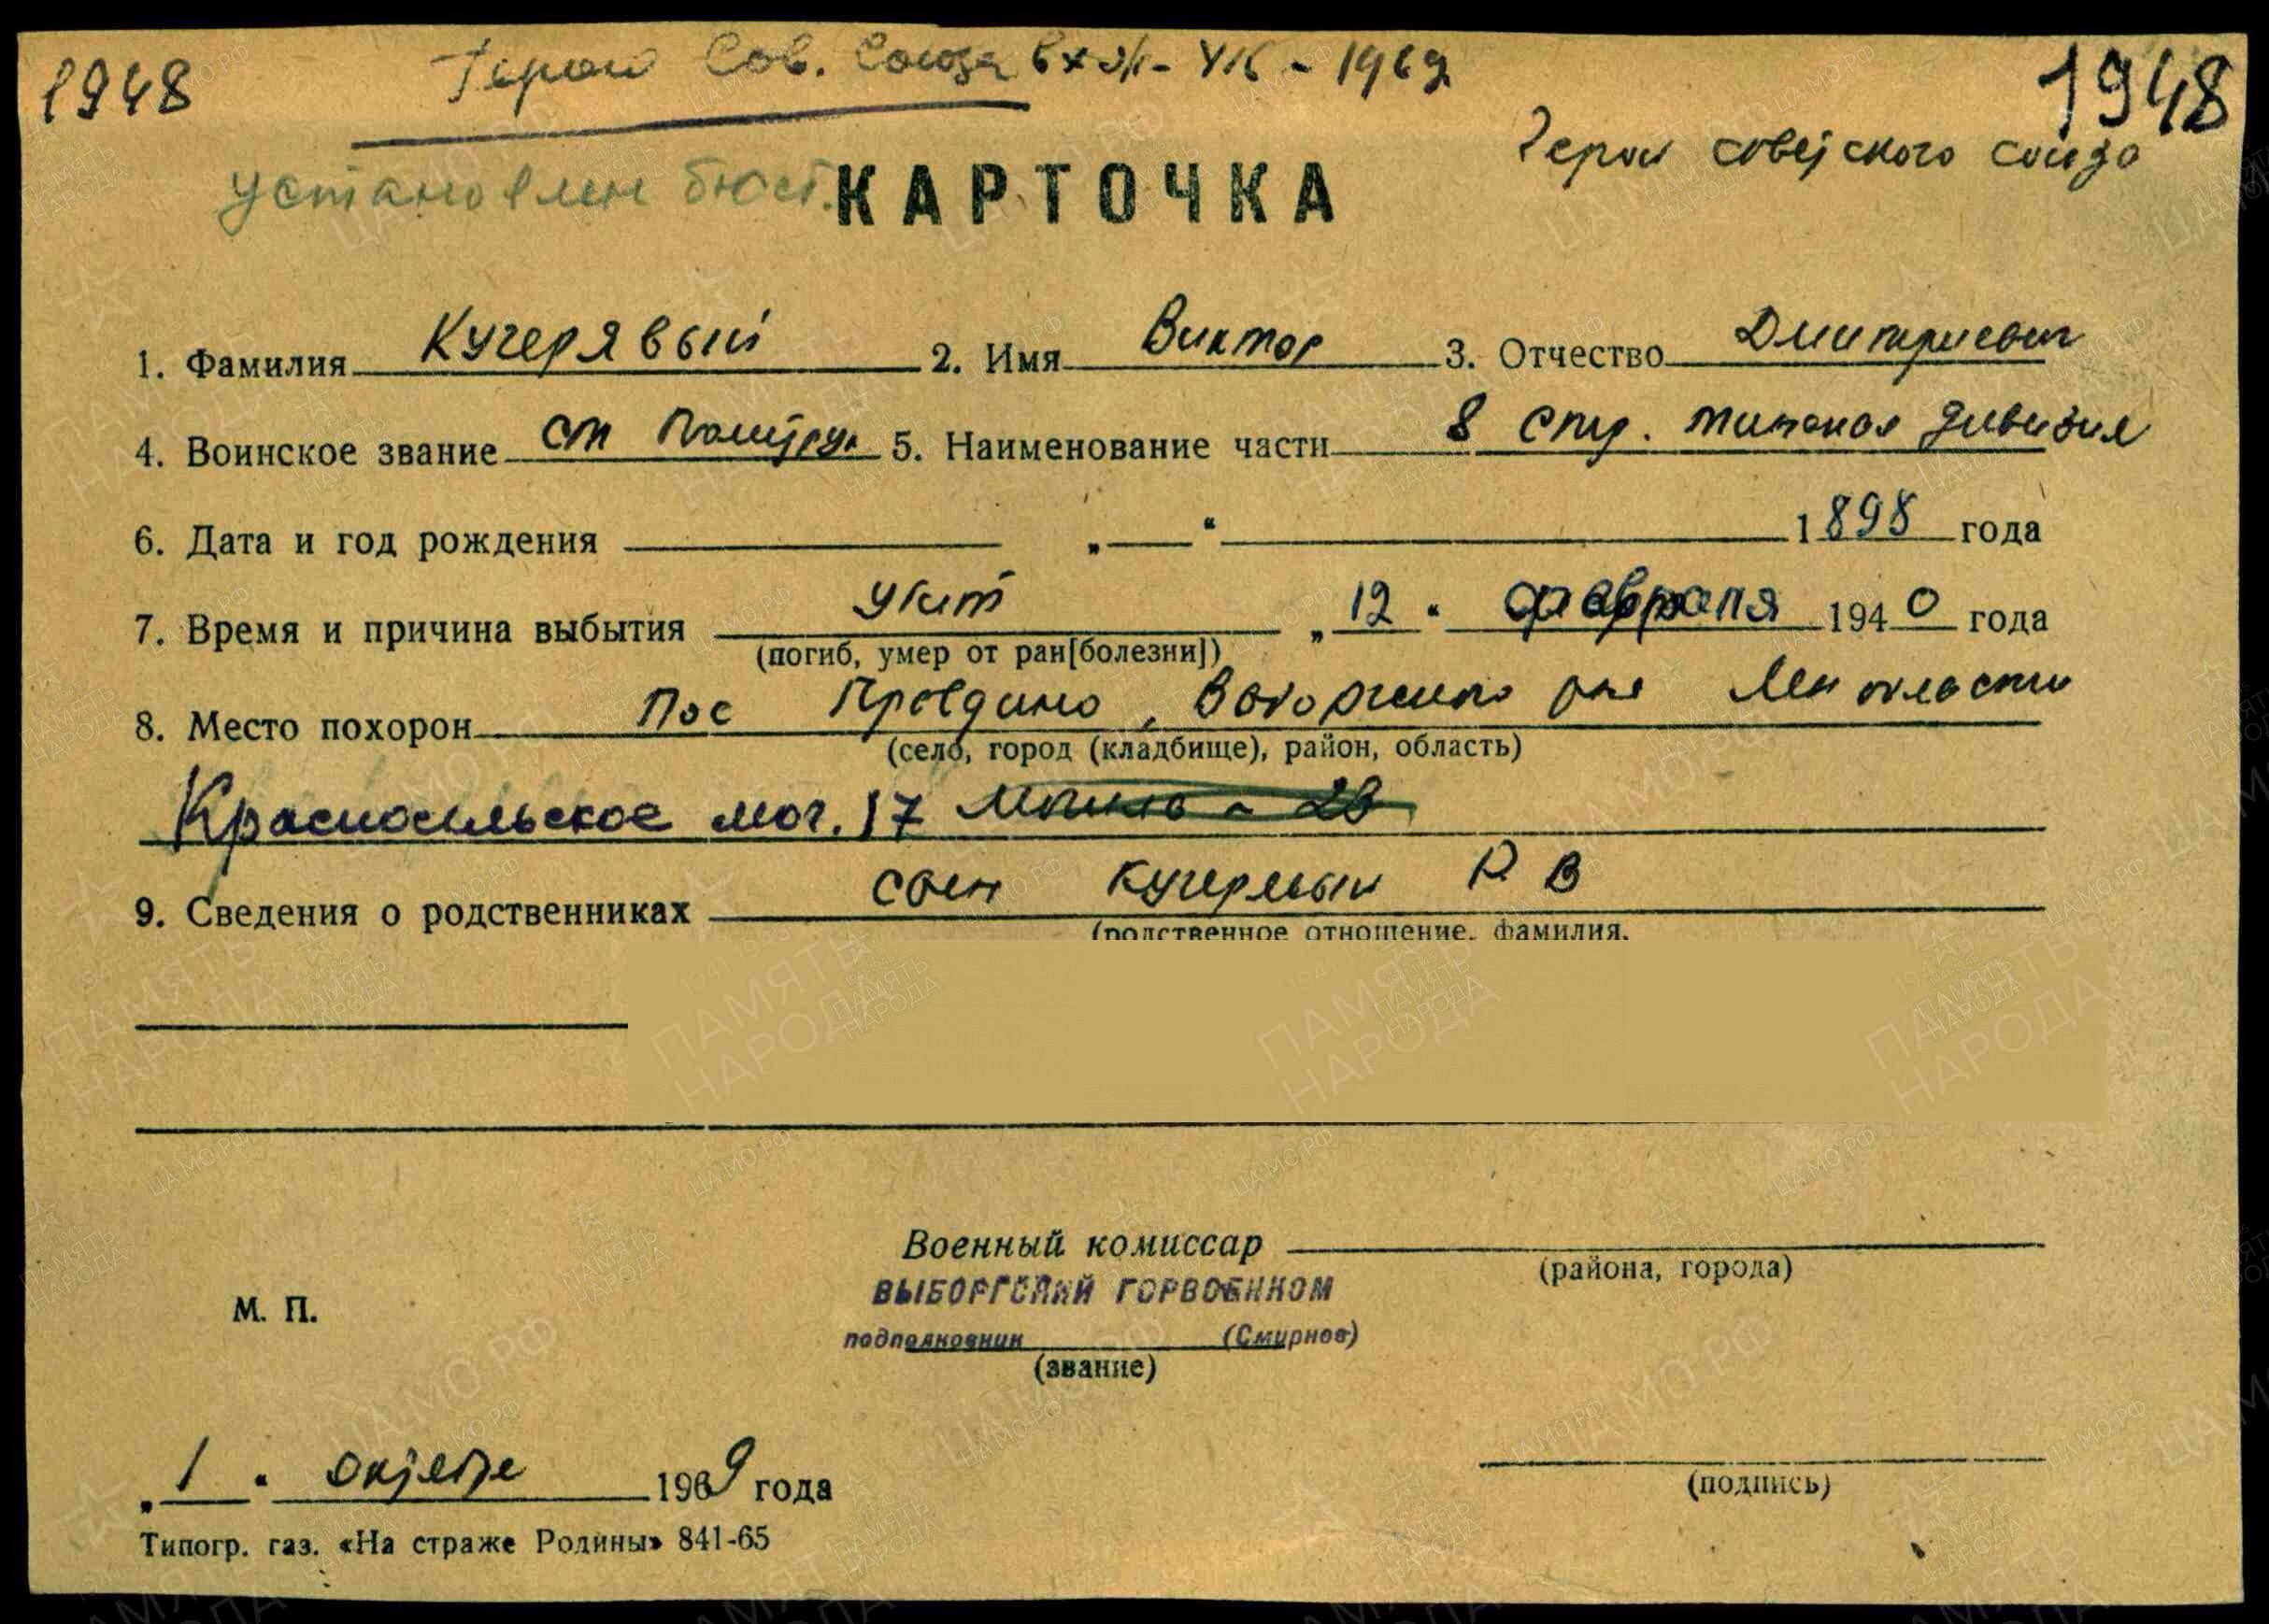 1948 Герой Сов. Союза вх 1969 1948
Герой советского союза
установлен бюст.
КАРТОЧКА
1. Фамилия Кучерявый 2. Имя Виктор 3. Отчество Дмитриевич
4. Воинское звание ст Политрук 5. Наименование части 8 стр. дивизия
6. Дата и год рождения „ “ 1898 года
7. Время и причина выбытия убит „12“ февраля 1940 года
(погиб, умер от ран[болезни])
8. Место похорон Пос Правдино, Выборгского рна Лен области
(село, город (кладбище), район, область)
Красносельское мог. 17
9. Сведения о родственниках сын Кучерявый В
(родственное отношение, фамилия,
Военный комиссар
(района, города)
ВЫБОРГСКИЙ ГОРВОЕНКОМ
М. П.
подполковник (Смирнов)
(звание)
„1“ октября 1969 года
(подпись)
Типогр. газ. «На страже Родины» 841-65
ПАМЯТЬ НАРОДА
ЦАМО.РФ